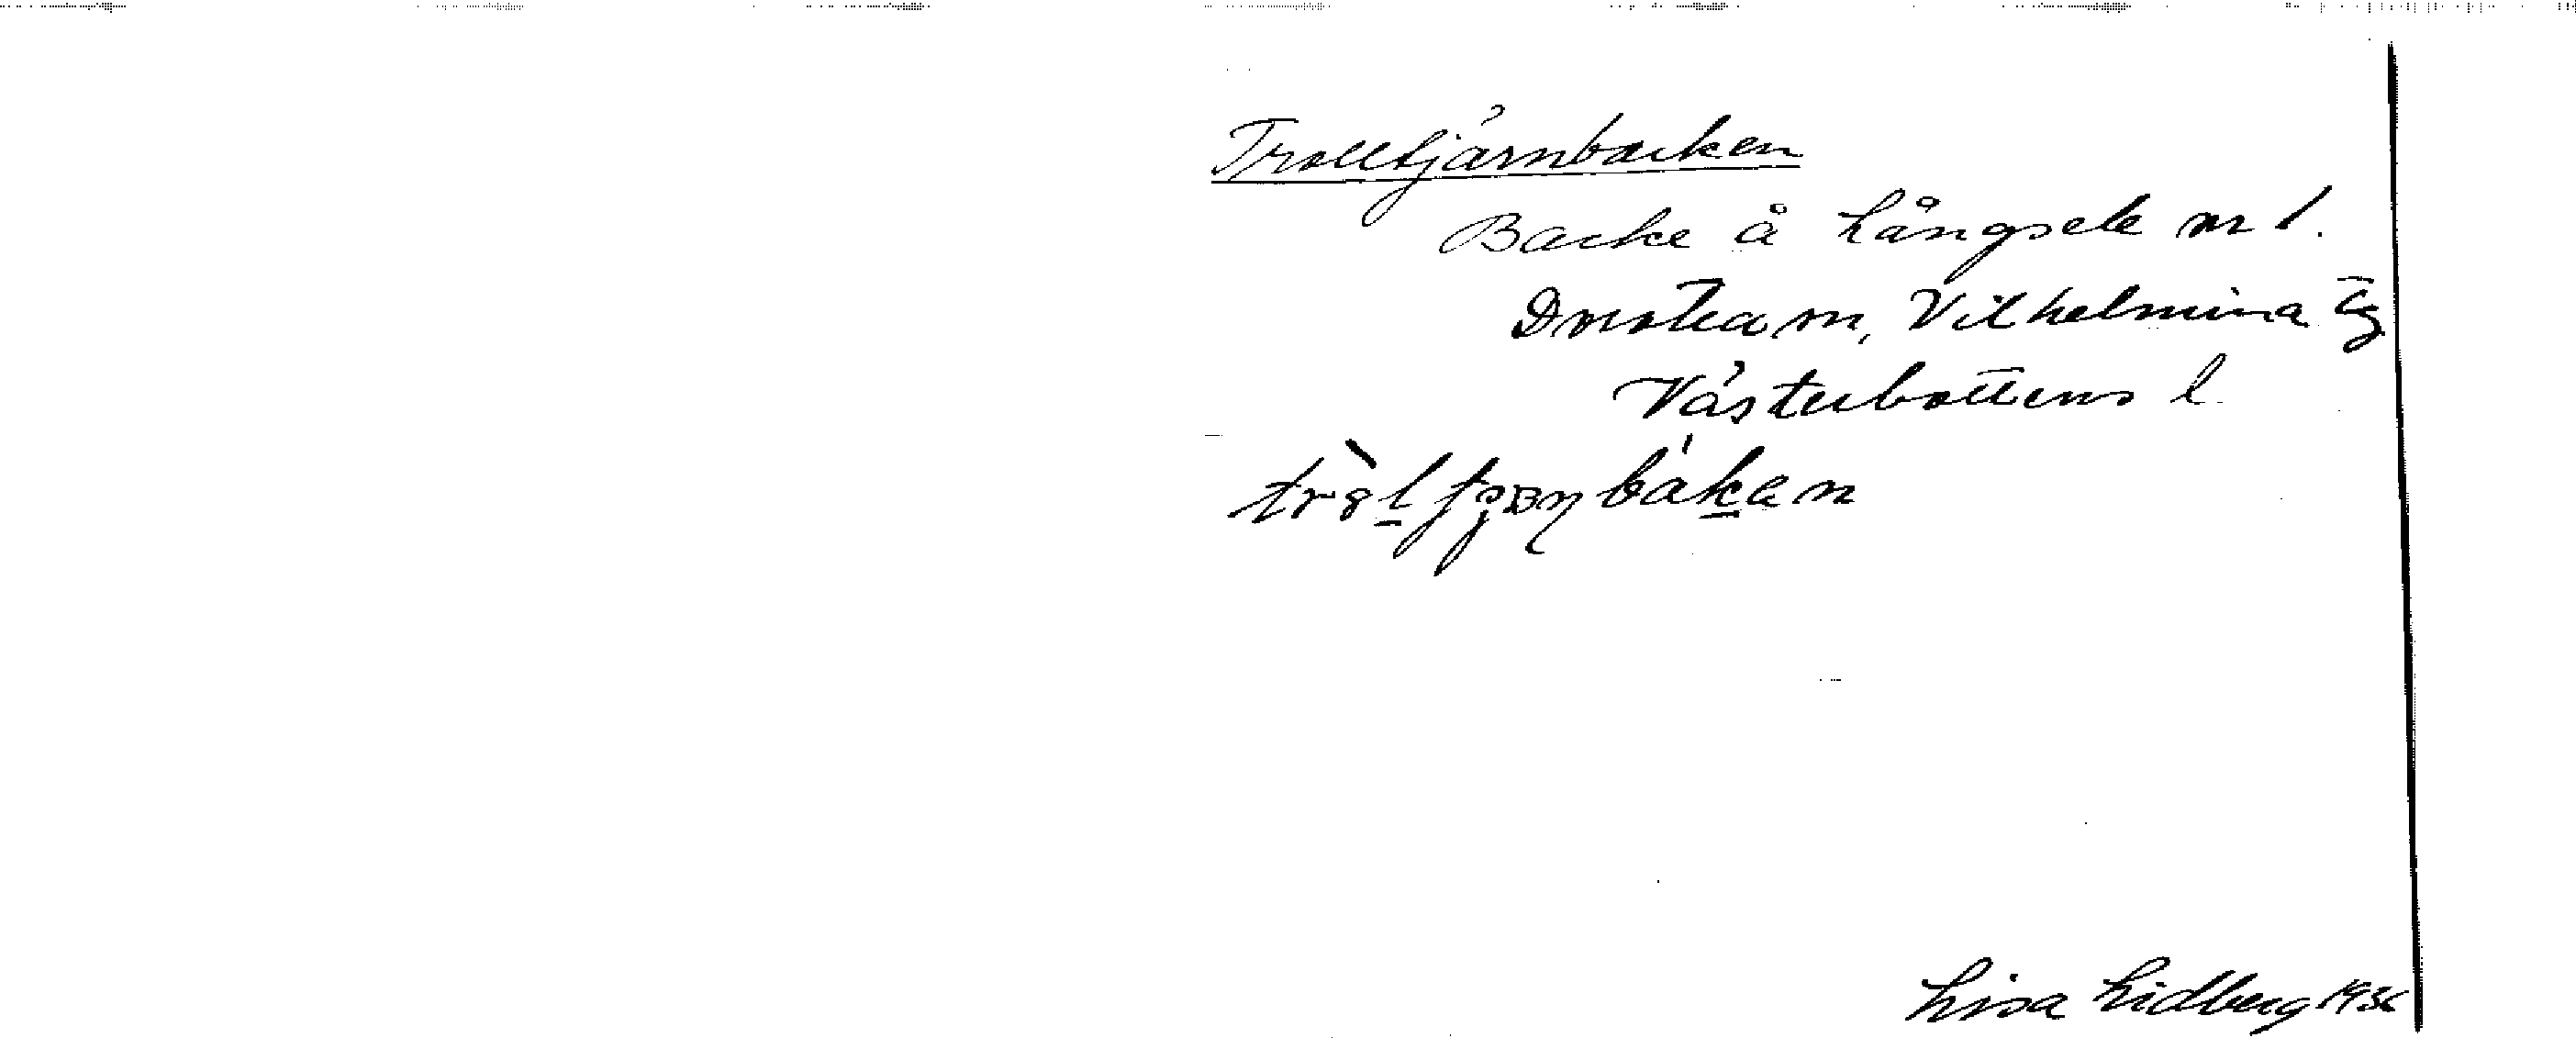 Trolltjärnbacken
Backe å Långsele nr 1.
Dorotea sn, Vilhelmina tg
Västerbottens l.
Lisa Lidberg 1936